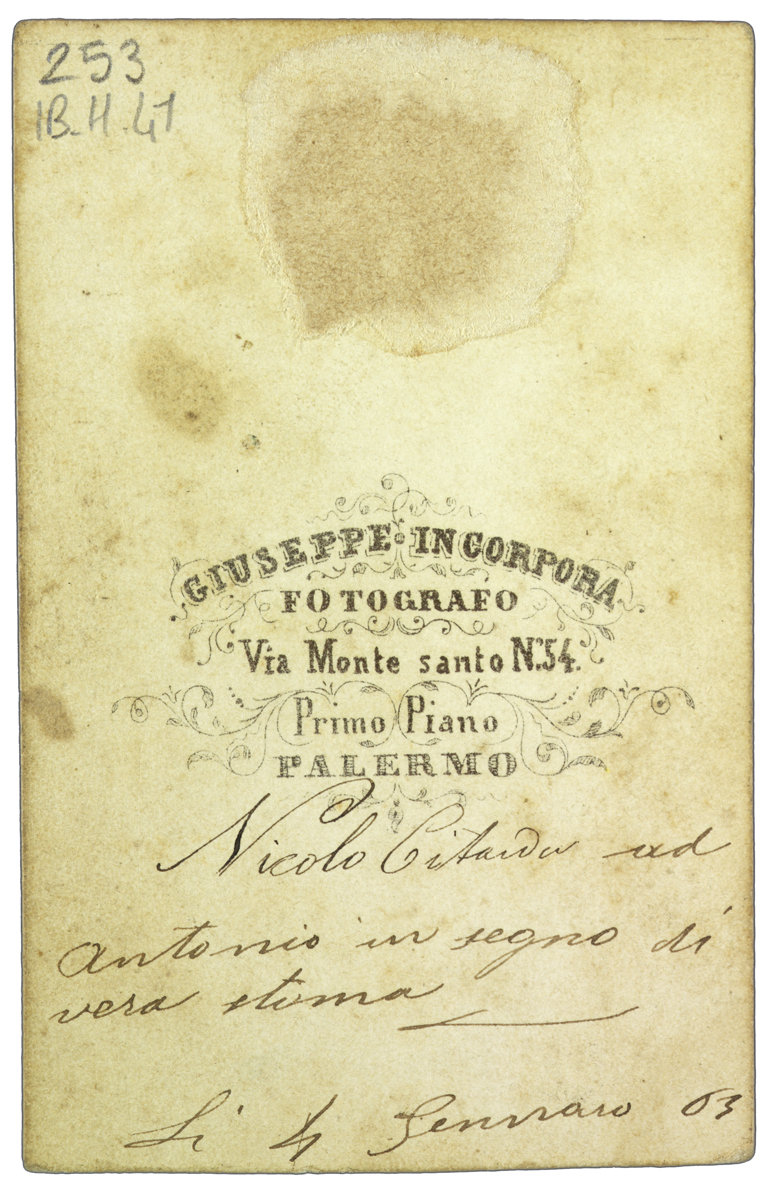 253
IB.H.47
GIUSEPPE INCORPORA
FOTOGRAFO
Via Monte santo N.° 54.
Primo Piano
PALERMO
Nicolo ad
Antonio in segno di
vera stima
Li 4 Gennaro 63